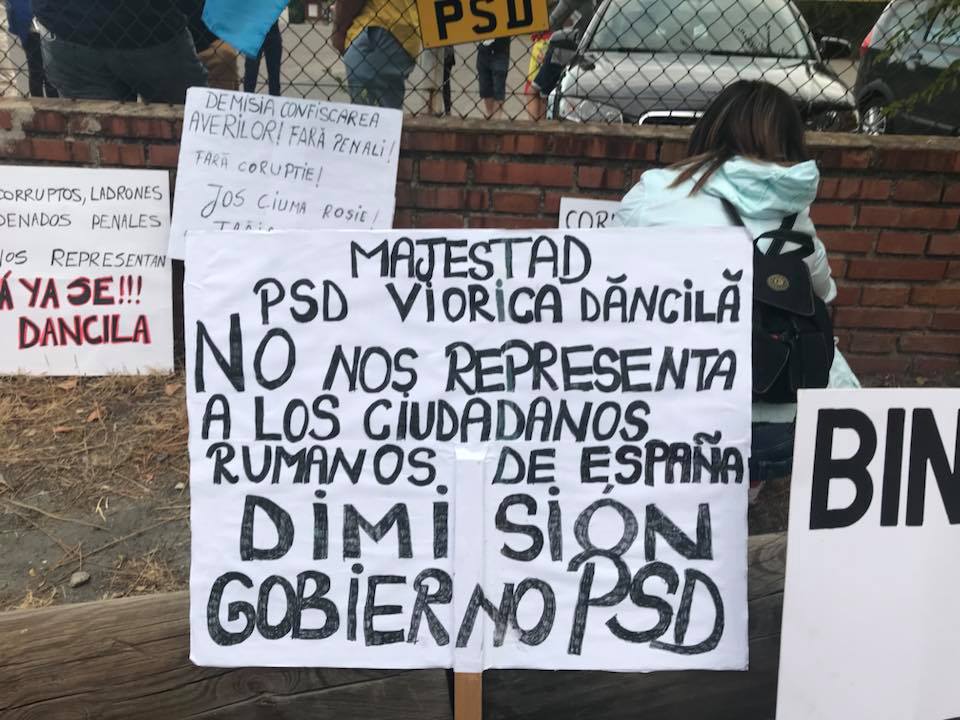 PSD
DEMISIA CONFISCAREA
AVERILOR! FARĂ PENALI!
FARĂ CORUPTIE!
JOS CIUMA ROSIE!
CORRUPTOS, LADRONES
PENALES
NOS REPRESENTAN
YA SE!!!
DANCILA
MAJESTAD
PSD VIORICA DĂNCILĂ
NO NOS REPRESENTA
A LOS CIUDADANOS
RUMANOS DE ESPAÑA
DIMISIÓN
GOBIERNO PSD
BIN